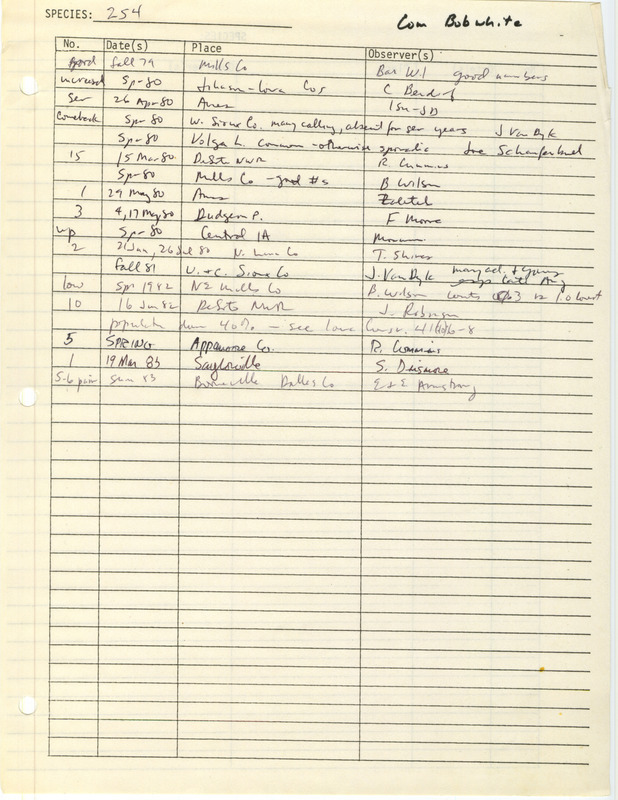 SPECIES: 254
Com Bobwhite
No. Date(s) Place Observer(s)
good fall 79 Mills Co Bar Wil good numbers
increased Spr 80 Johnson-Iowa Cos C Bendorf
sev 26 Apr 80 Ames ISU-JD
Comeback Spr 80 W. Sioux Co. many calling, absent for sev years J Van Dyk
Spr 80 Volga L. common - otherwise sporadic Joe Schaufenbuel
15 15 Mar 80 DeSoto NWR R. Cummins
Spr 80 Mills Co - good #s B Wilson
1 29 May 80 Ames Zaletel
3 4, 17 May 80 Dudgeon P. F Moore
up Spr 80 Central IA
2 21 Jun, 26 Jul 80 N. Linn Co T. Shires
Fall 81 U. + C. Sioux Co J. Van Dyk many ad. + young
low Spr 1982 NE Mills Co B. Wilson counts 63 vs lowest
10 16 Jan 82 DeSoto NWR J. Robinson
population down 40% - see Iowa Conserv. 41(10)6-8
5 SPRING Appanoose Co. R. Cummins
1 19 Mar 83 Saylorville S. Dinsmore
5-6 pair Sum 83 Booneville Dallas Co E & E Armstrong